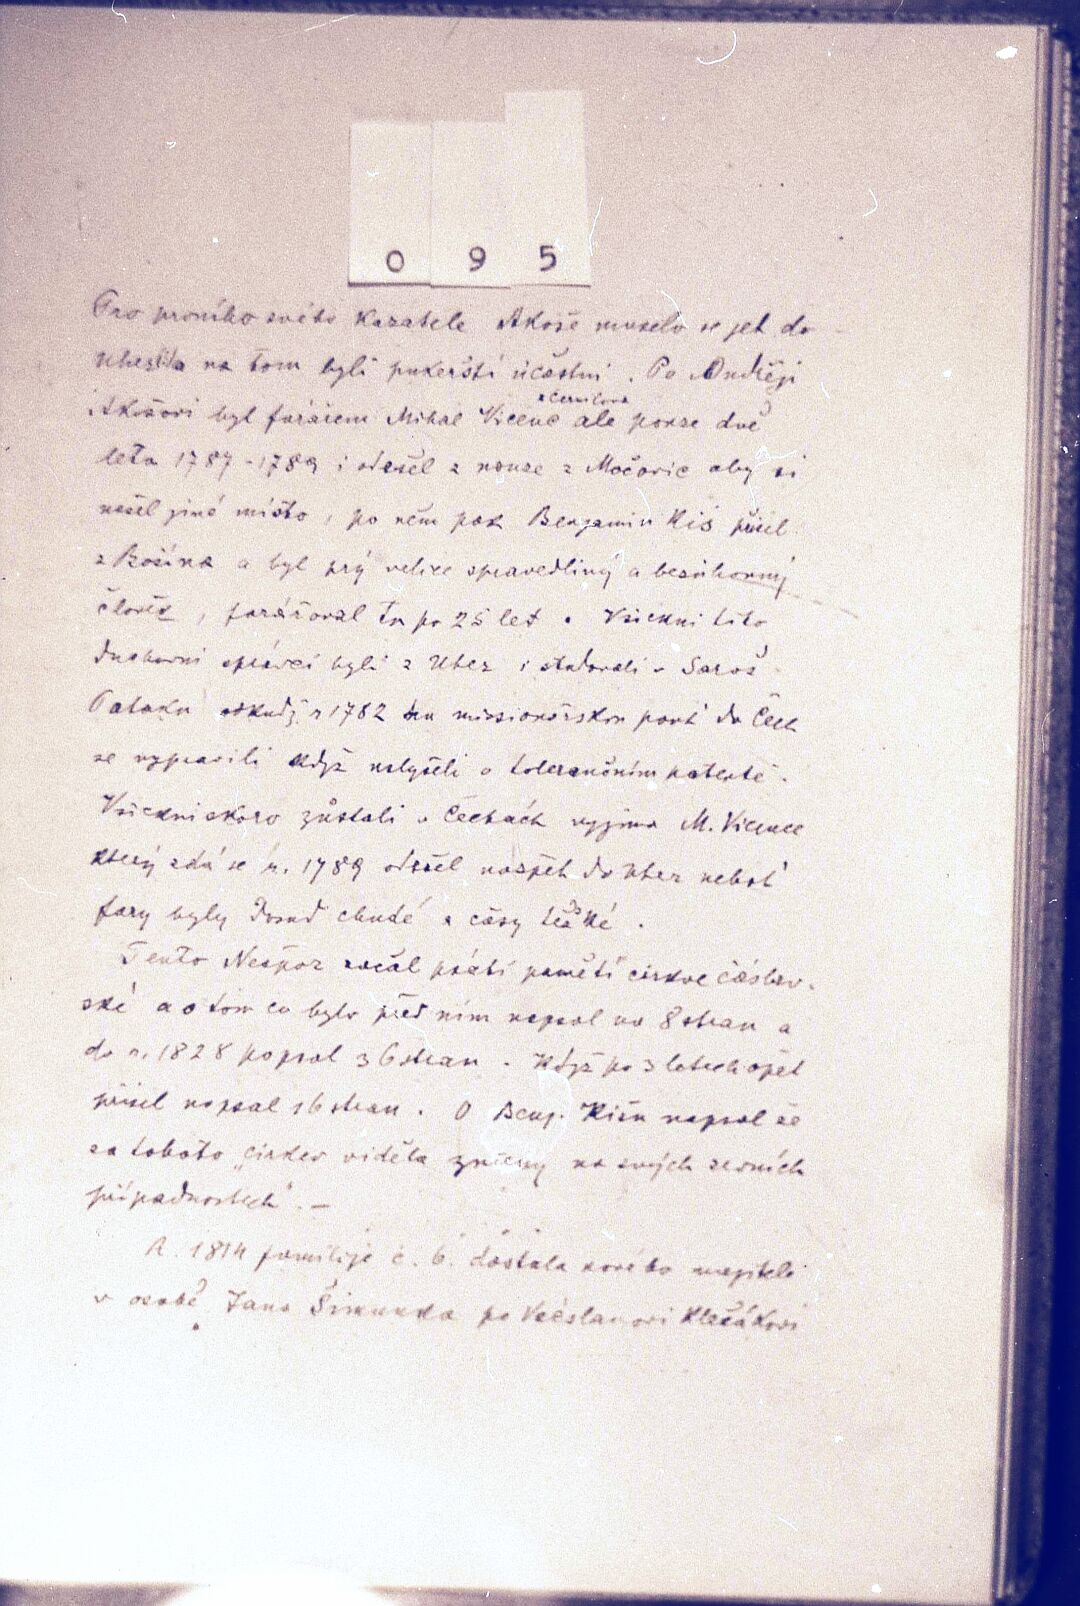 095
Pro prvního svého kazatele Akoše muselo se jet do
Uher a na tom byli pukerští účastni. Po Ondřeji
z Černilova
Akošovi byl farářem Mihal Vicenc ale pouze dvě
leta 1787-1789 i odešel z nouze z Močovic aby si
našel jiné místo, po něm pak Benjamin Kiš přišel
z Bošína a byl prý velice spravedliný a bezúhonný
člověk, farářoval tu po 25 let. Všickni tito
duchovní správci byli z Uher i studovali v Saroš
Pataku odkudž r 1782 tu missionářskou pouť do Čech
se vypravili když uslyšeli o tolerančním patentě.
Všickni skoro zůstali v Čechách vyjma M. Vicence
který zdá se r. 1789 odešel nazpět do Uher neboť
fary byly dosud chudé a časy těžké.
Tento Nešpor začal psáti paměti církve čáslav-
ské a o tom co bylo před ním napsal na 8 stran a
do r. 1828 popsal 36 stran. Když po 3 letech opět
přišel napsal 16 stran. O Benj. Kišu napsal že
za tohoto „církev viděla změny na svých zevních
případnostech". —
R. 1814 familije č. 6. dostala nového majitele
v osobě Jana Šimunka po Václavovi Klečákovi